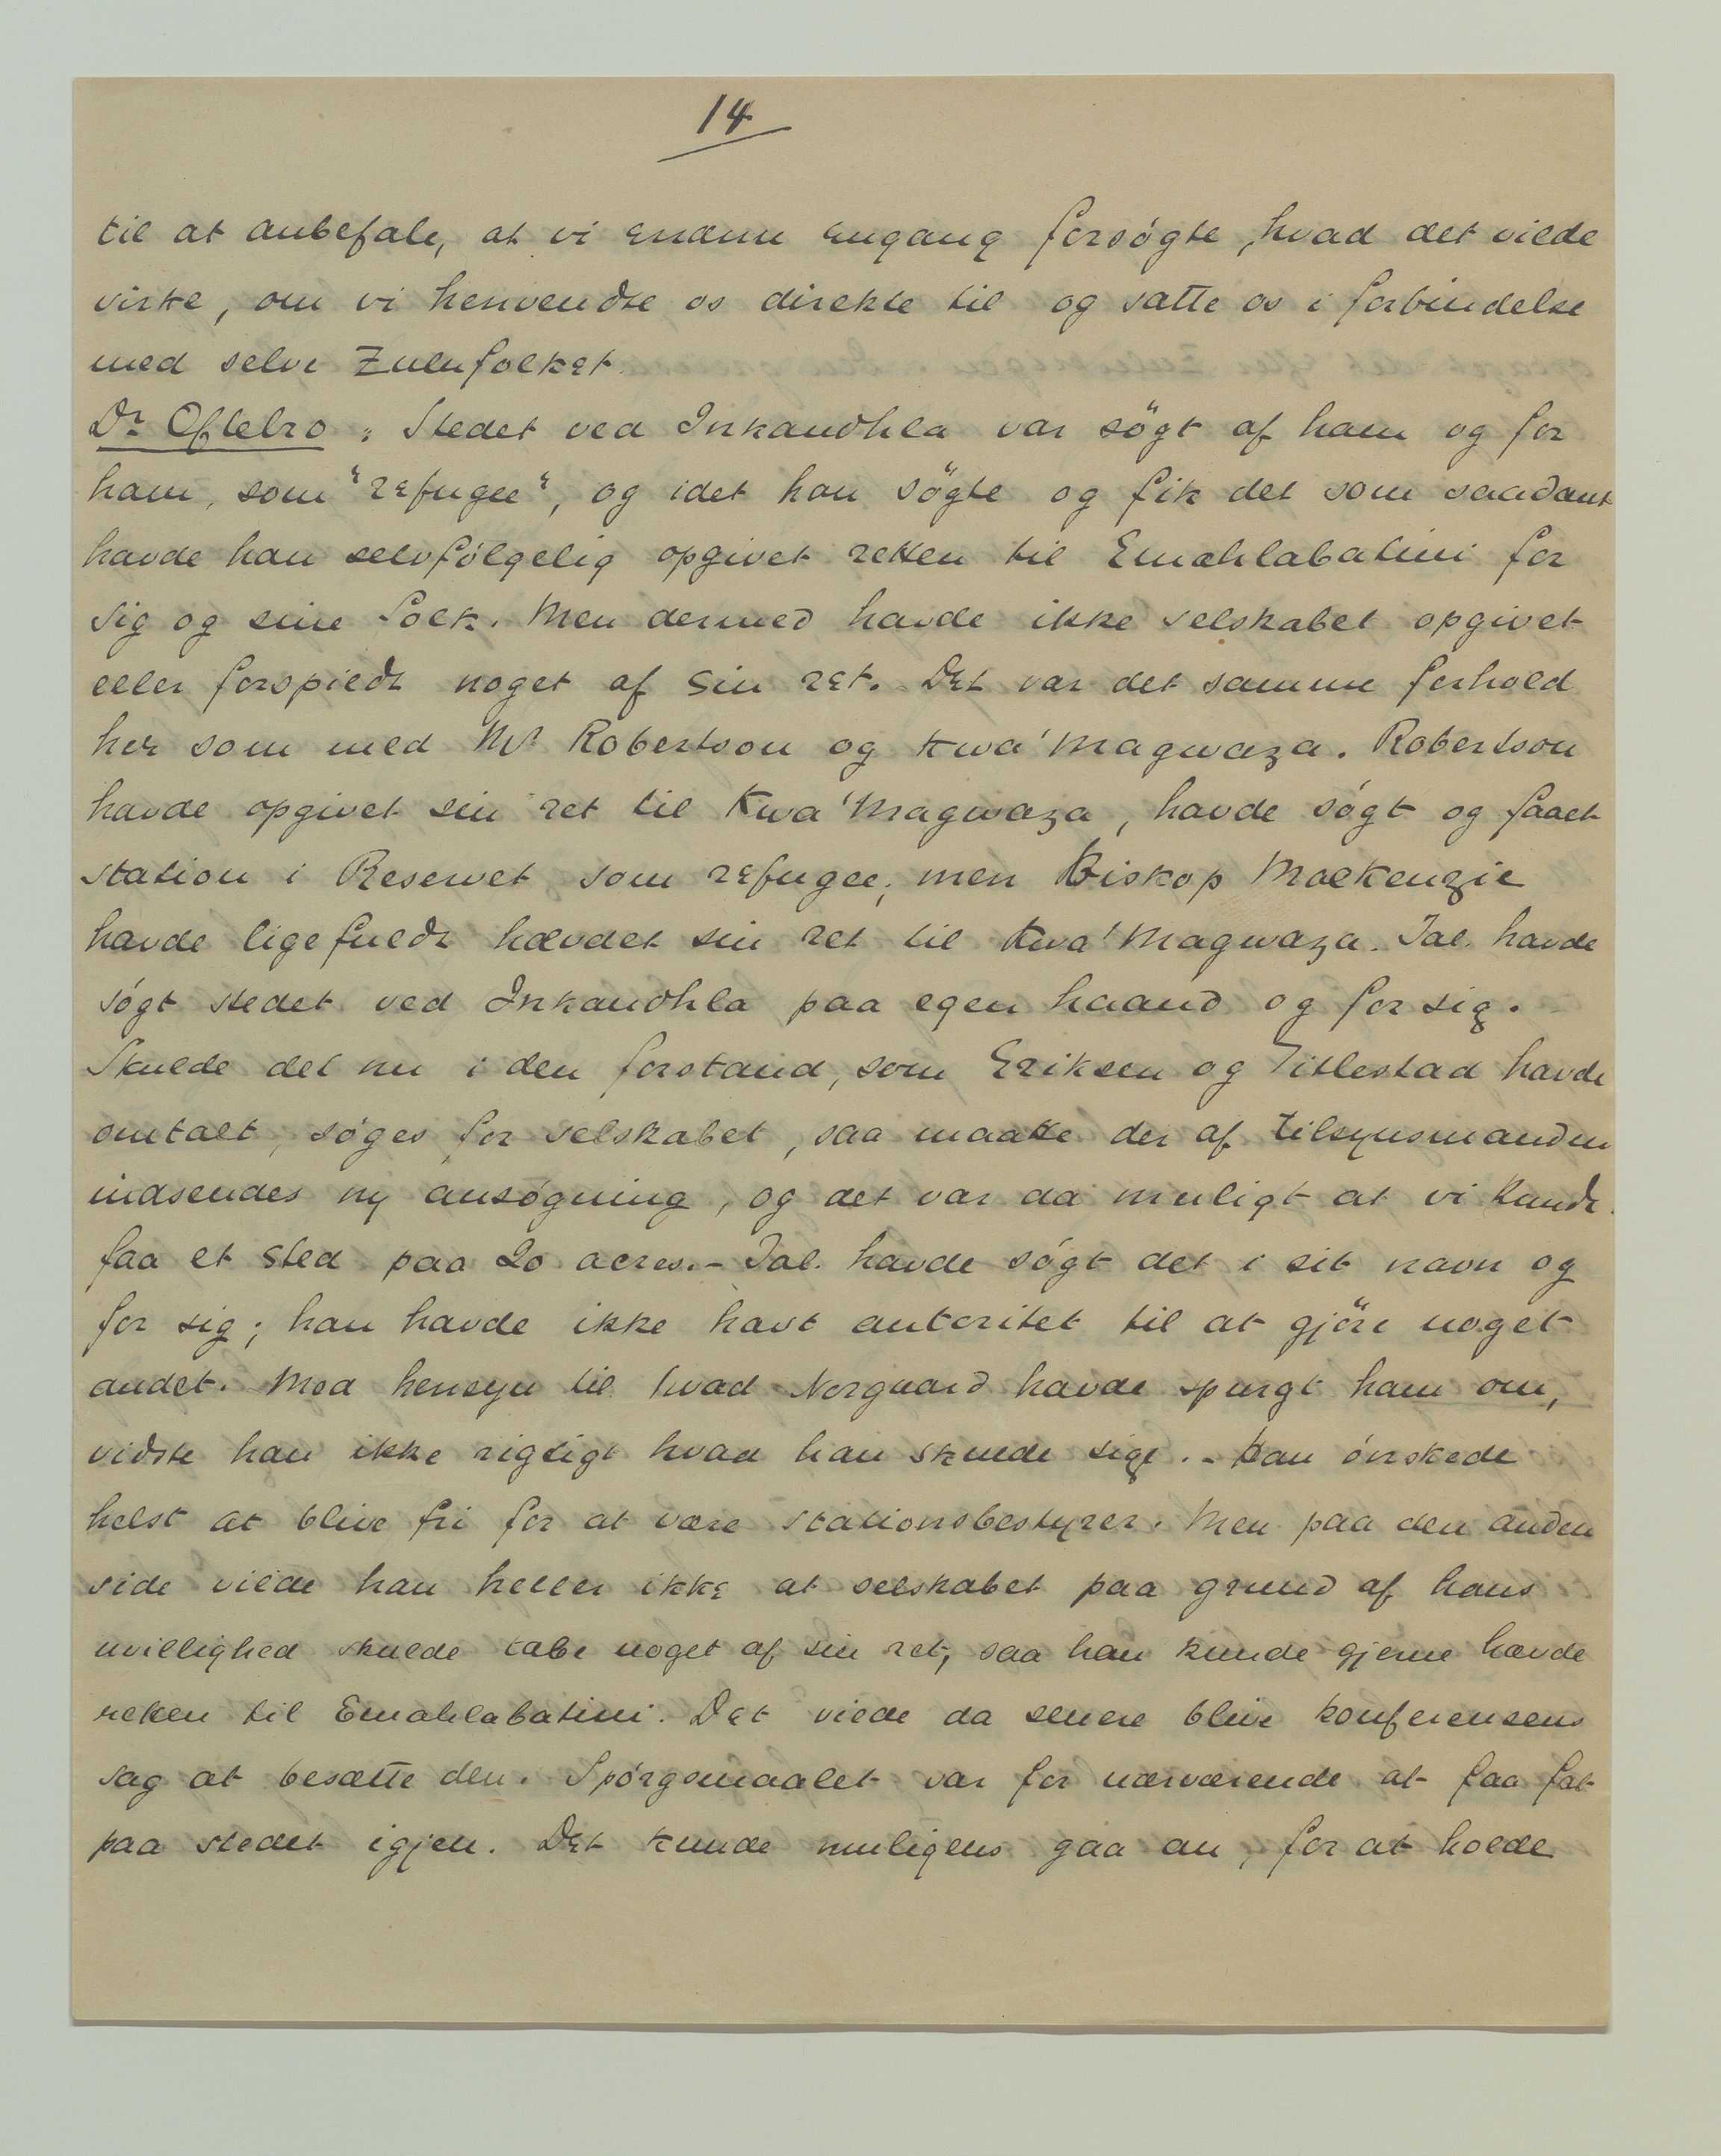 14
til at anbefale, at vi endnu engang forsøgte, hvad det vilde
virke, om vi henvendte os direkte til og satte os i forbindelse
med selve Zulufolket.
Dr Oftebro: Stedet ved Inkandhla var søgt af ham og for
ham, som "refugee", og idet han søgte og fik det som saadant
havde han selvfølgelig opgivet retten til Emahlabatini for
sig og sine folk. Men dermed havde ikke selskabet opgivet
eller forspildt noget af sin ret. Det var det samme forhold
her som med Mr Robertson og Kwa'Magwaza. Robertson
havde opgivet sin ret til Kwa'Magwaza, havde søgt og faaet
station i Reservet som refugee; men Biskop Mackenzie
havde ligefuldt hævdet sin ret til Kwa'Magwaza. Tal. havde
søgt stedet ved Inkandhla paa egen haand og for sig.
Skulde det nu i den forstand, som Eriksen og Titlestad havde
omtalt, søges for selskabet, saa maatte der af tilsynsmanden
indsendes ny ansøgning, og det var da muligt at vi kunde
faa et sted paa 20 acres. - Tal. havde søgt det i sit navn og
for sig; han havde ikke havt autoritet til at gjøre noget
andet. Med hensyn til hvad Norgaard havde spurgt ham om,
vidste han ikke rigtigt hvad han skulde sige. - Han ønskede
helst at blive fri for at være stationsbestyrer. Men paa den anden
side vilde han heller ikke at selskabet paa grund af hans
uvillighed skulde tabe noget af sin ret, saa han kunde gjerne hævde
retten til Emahlabatini. Det vilde da senere blive konferensens
sag at besætte den. Spørgsmaalet var for nærværende at faa fat
paa stedet igjen. Det kunde muligens gaa an, for at holde